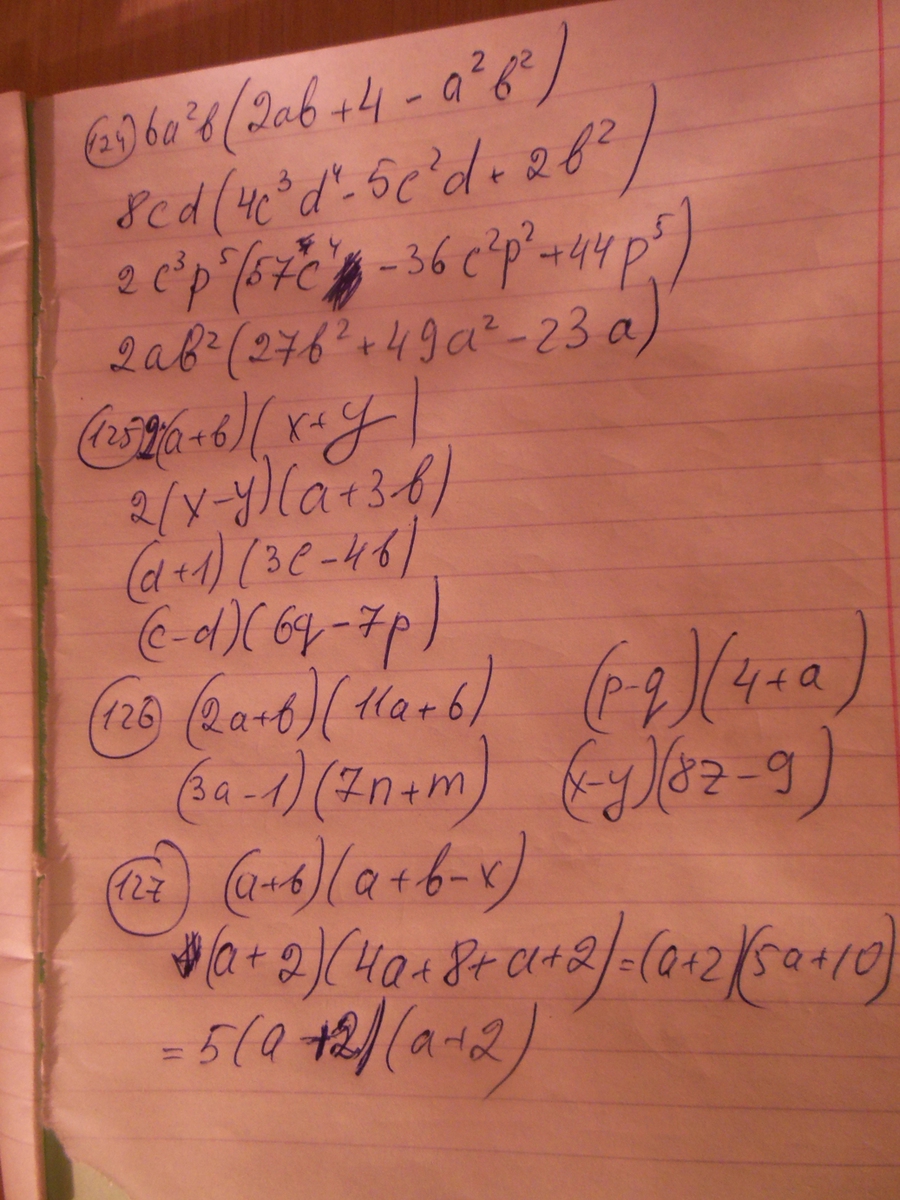 124) 6a²b(2ab + 4 - a²b²)
8cd(4c³d⁴ - 5c²d + 2b²)
2c³p⁵(57c⁴ - 36c²p² + 44p⁵)
2ab²(27b² + 49a² - 23a)
125) (a+b)(x+y)
2(x-y)(a+3b)
(d+1)(3c-4b)
(c-d)(6q-7p)
126 (2a+b)(11a+6) (p-q)(4+a)
(3a-1)(7n+m) (x-y)(8z-9)
127 (a+b)(a+b-x)
(a+2)(4a+8+a+2)=(a+2)(5a+10)
=5(a+2)(a+2)